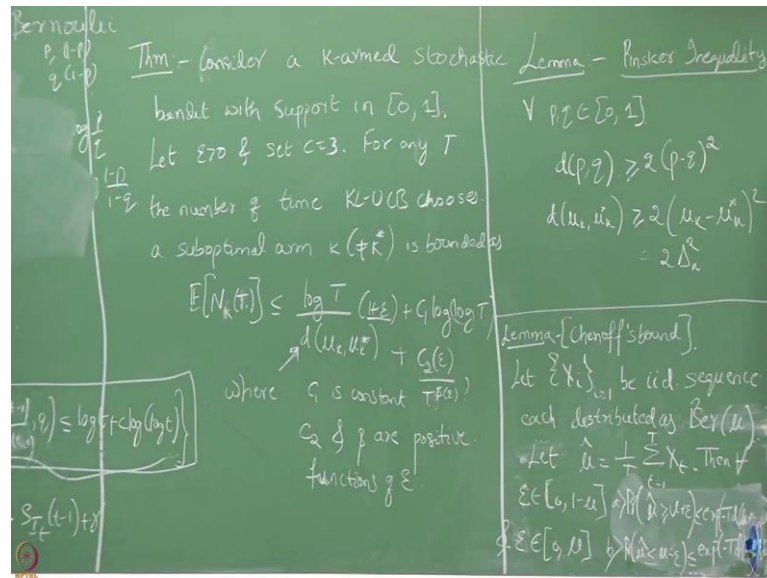 Bernoulei
p, (1-p)
q (1-p)
log p/q
1-p/1-q
(t-1), q) ≤ log t + c log(log t)}
S_{I_t}(t-1)+γ
Thm:- Consider a K-armed Stochastic
bandit with support in [0, 1].
Let ε>0 & set C=3. For any T
the number of time KL-UCB chooses
a suboptimal arm k (≠K*) is bounded as
E[N_k(T)] ≤ log T / d(μ_k, μ_k*) (1+ε) + C_1 log log T
+ C_2(ε) / T^β(ε)
where C_1 is constant
C_2 & β are positive
functions of ε.
Lemma:- Pinsker Inequality
∀ p,q ∈ [0, 1]
d(p,q) ≥ 2 (p-q)^2
d(μ_k, μ_k*) ≥ 2 (μ_k - μ_k*)^2
= 2 Δ_k^2
Lemma-[Chenoff's bound].
Let {X_i}_{i=1} be iid. sequence
each distributed as Ber(μ).
Let μ̂ = 1/T Σ_{t=1}^T X_t. Then ∀
ε ∈ [0, 1-μ] a> Pr(μ̂ ≥ μ+ε) ≤ exp(-Td(μ+
& ε ∈ [0, μ] b> Pr(μ̂ < μ-ε) ≤ exp(-Td(μ
NPTEL